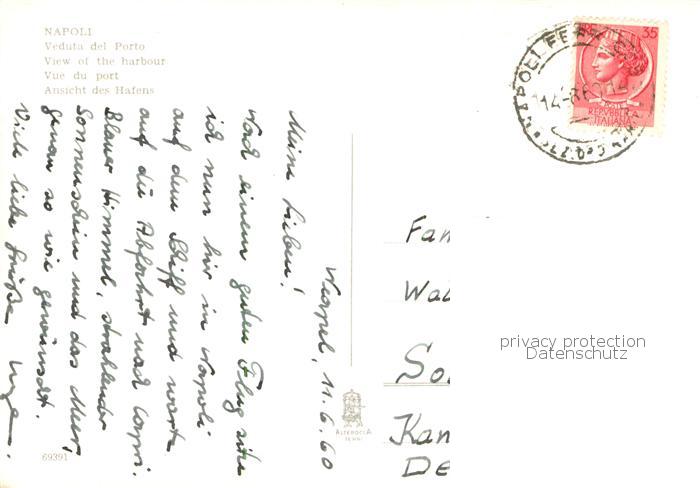 NAPOLI
Veduta del Porto
View of the harbour
Vue du port
Ansicht des Hafens
Neapel, 11.6.60
Meine Lieben!
Nach einem guten Flug sitze
ich nun hier in Napoli
auf dem Schiff und warte
auf die Abfahrt nach Capri.
Blauer Himmel, strahlender
Sonnenschein und das Meer,
genau so wie gewünscht.
Viele liebe Grüße
35
POSTE
REPVBBLICA
ITALIANA
Fam
Wal
So
Kan
De
privacy protection
Datenschutz
ALTEROCCA
TERNI
69391